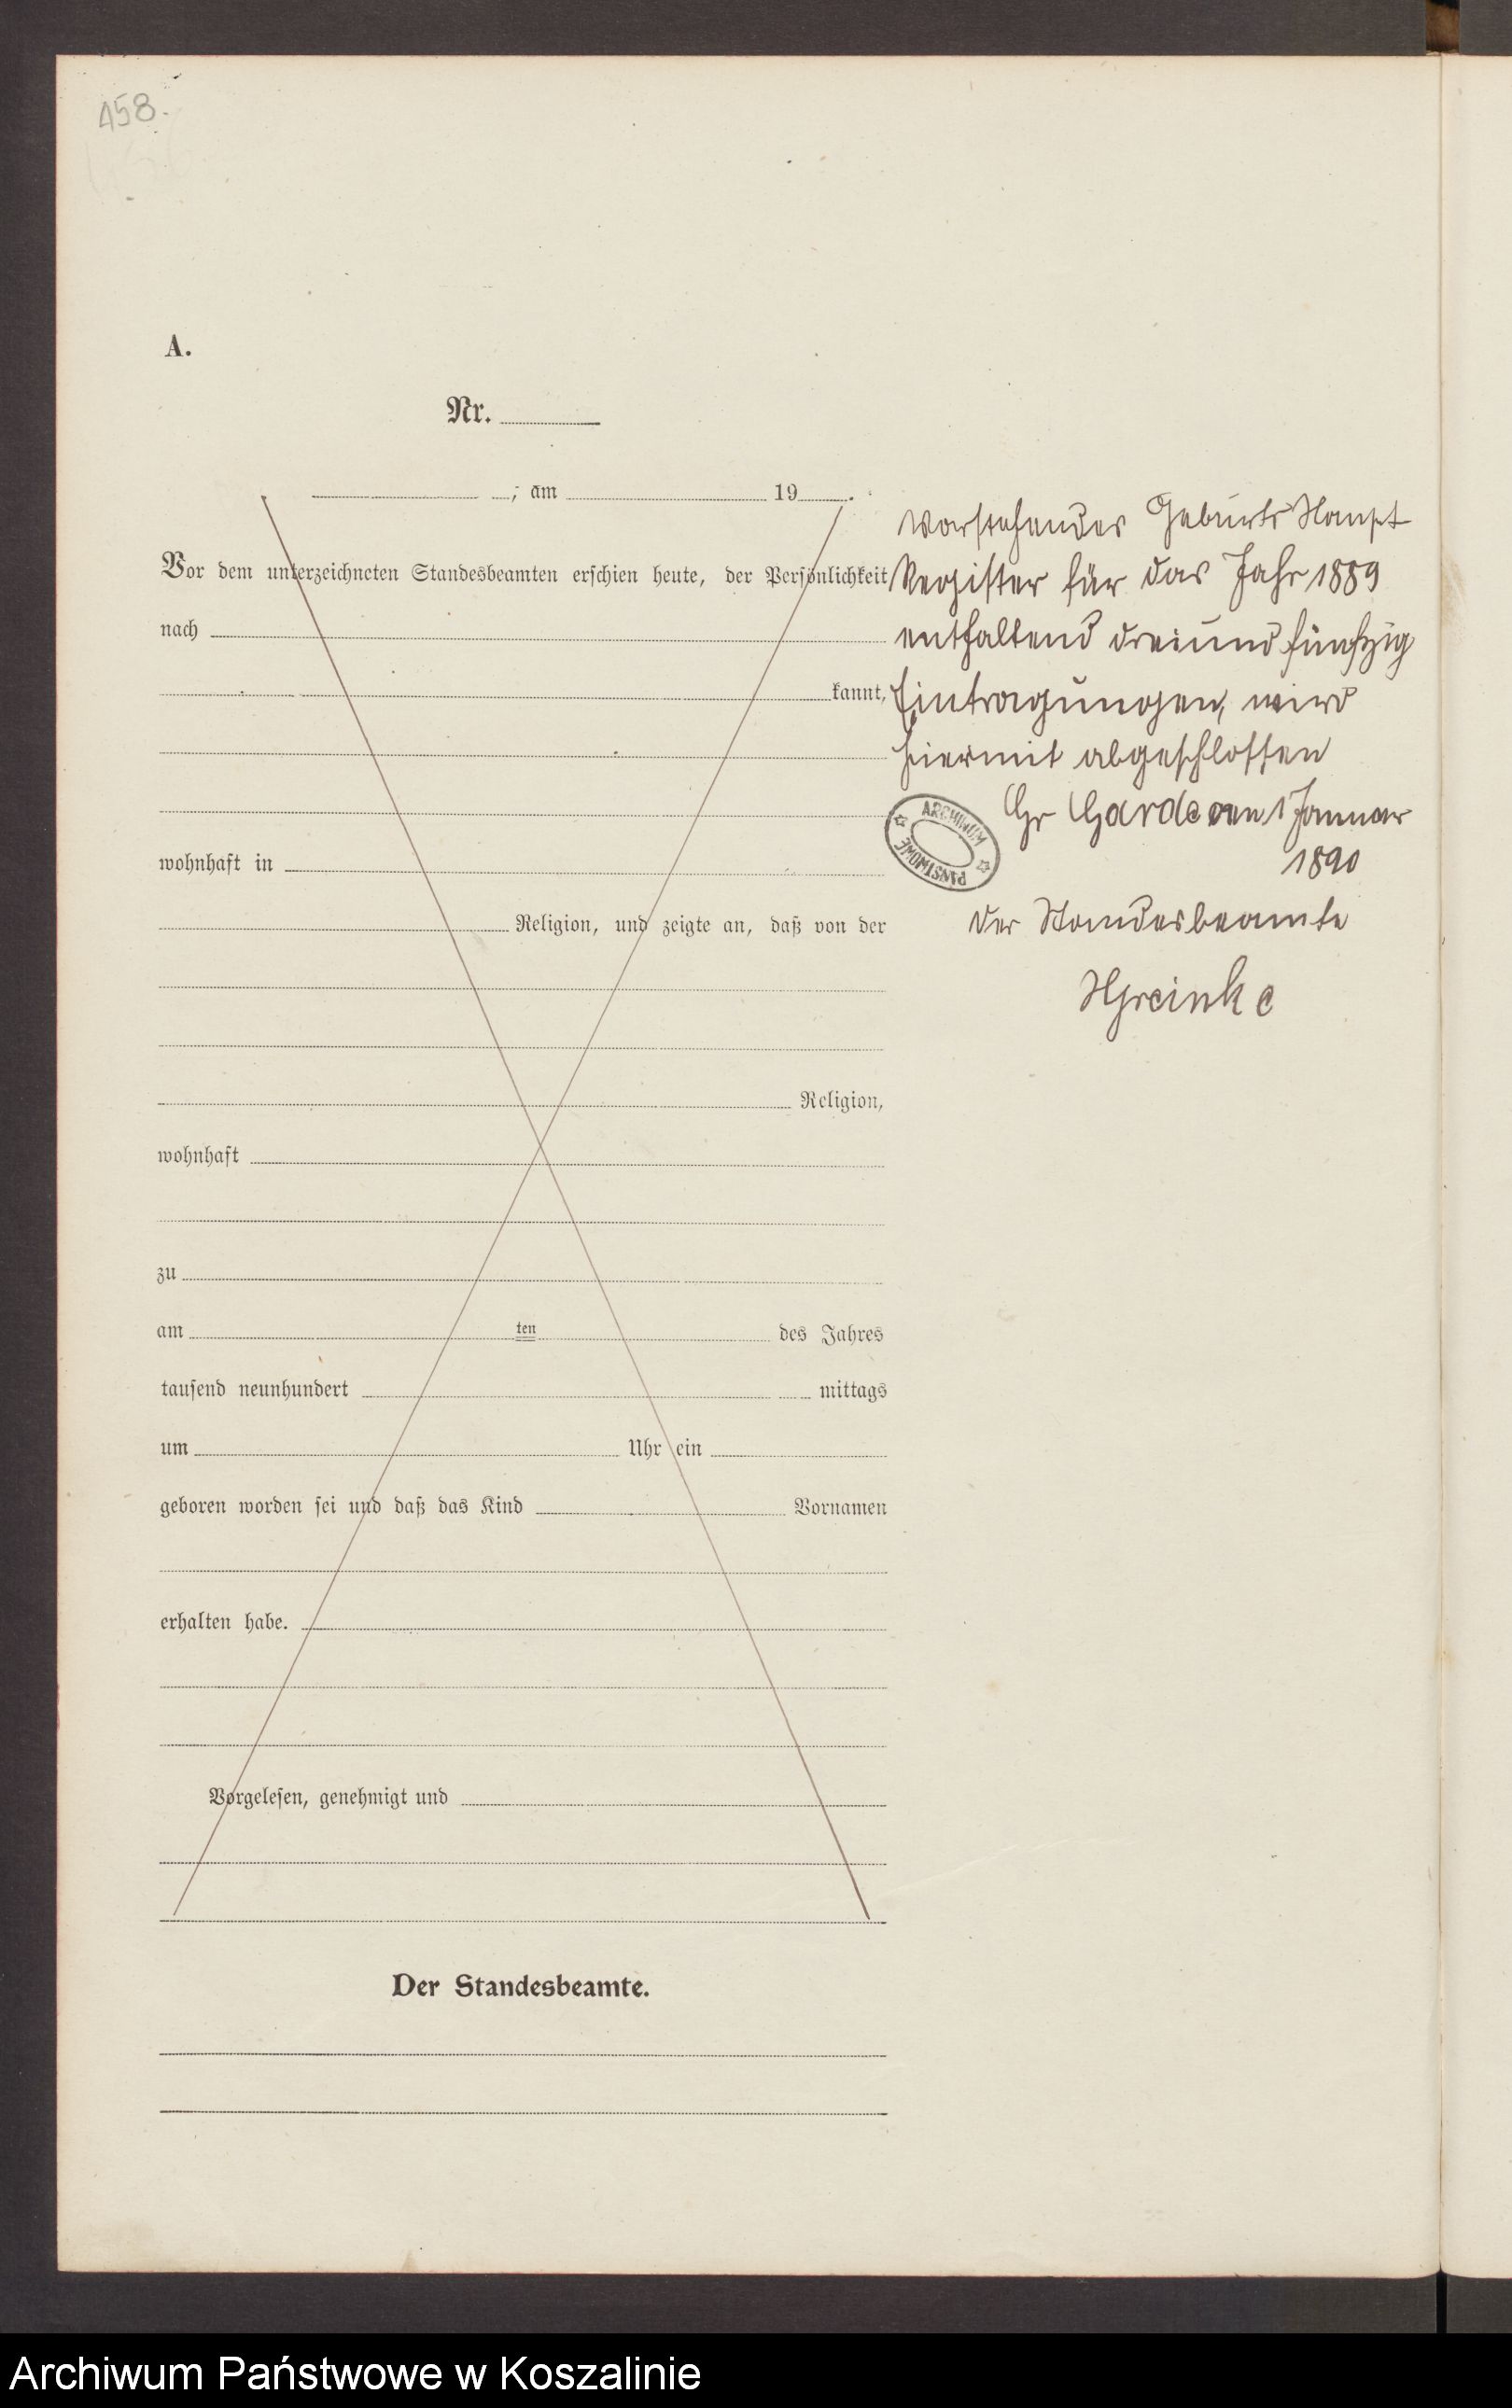 458.
A.
Nr.
, am 19 .
Vor dem unterzeichneten Standesbeamten erschien heute, der Persönlichkeit
nach
kannt,
wohnhaft in
Religion, und zeigte an, daß von der
Religion,
wohnhaft
zu
am ten des Jahres
tausend neunhundert mittags
um Uhr ein
geboren worden sei und daß das Kind Vornamen
erhalten habe.
Vorgelesen, genehmigt und
Der Standesbeamte.
Vorstehendes Geburts Haupt
Register für das Jahr 1889
enthaltend dreiund fünfzig
Eintragungen, wird
hiermit abgeschlossen
Gr Garde am 1 Januar
1890
Der Standesbeamte
ARCHIWUM
PAŃSTWOWE
Archiwum Państwowe w Koszalinie